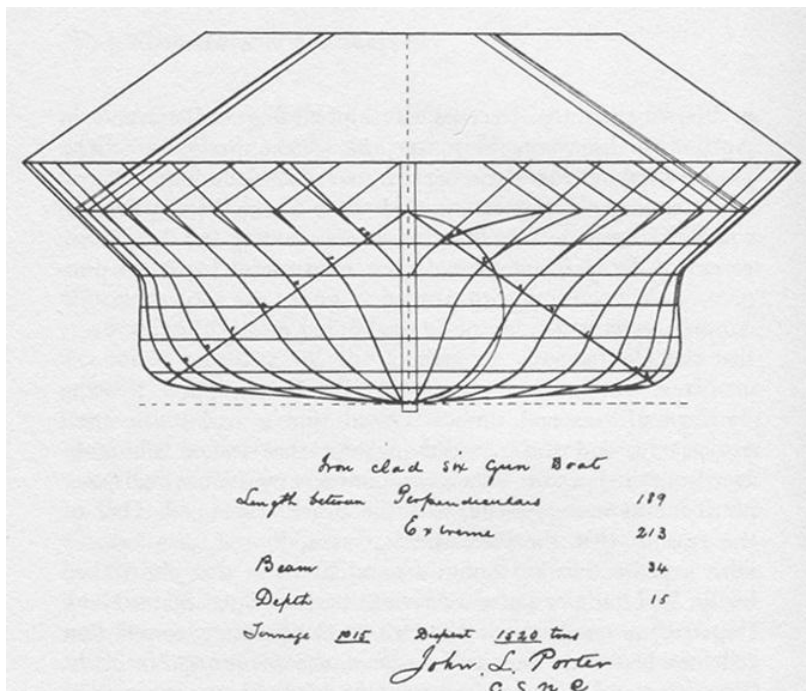 Iron clad six Gun Boat
Length between Perpendiculars 189
Extreme 213
Beam 34
Depth 15
Tonnage 1015 Dispest 1520 tons
John. L. Porter
C. S. N. C